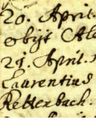 20. April.
obijt Al
29. April.
Laurentius
Retterbach.